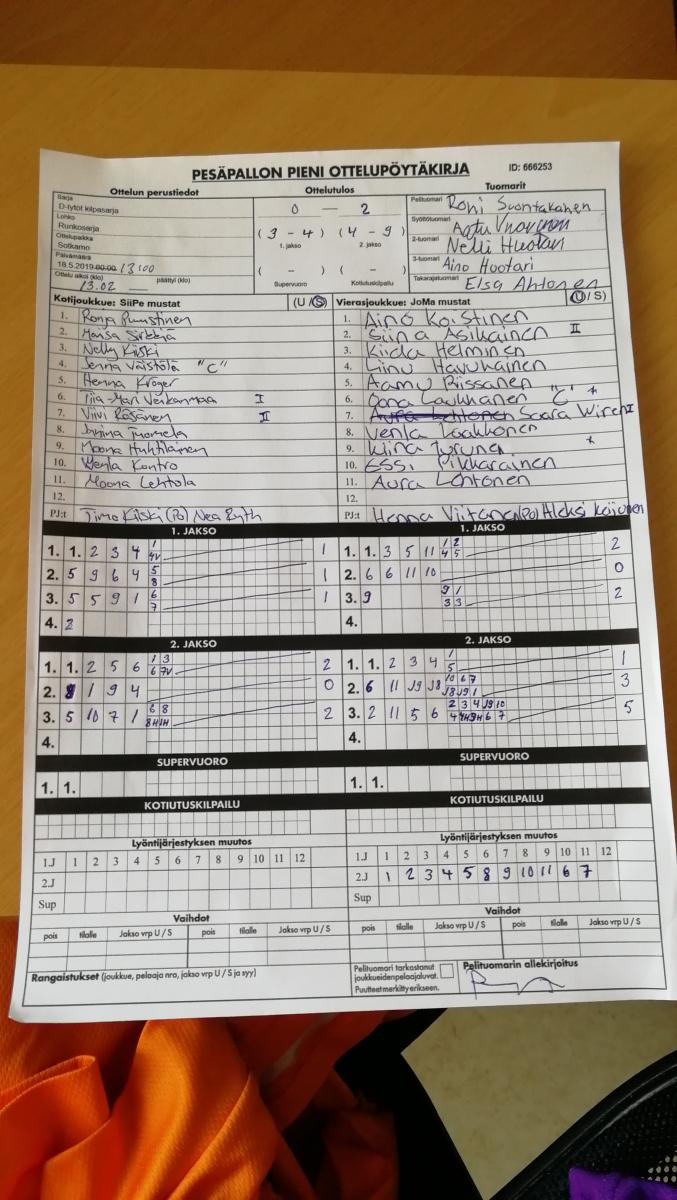 PESÄPALLON PIENI OTTELUPÖYTÄKIRJA ID: 666253
Ottelun perustiedot Ottelutulos Tuomarit
Sarja
D-tytöt kilpasarja
Lohko
Runkosarja
Ottelupaikka
Sotkamo
Päivämäärä
18.5.2019 00:00 13:00
Ottelu alkoi (klo) päättyi (klo)
13.02 —
0 — 2
(3 - 4) (4 - 9)
1. jakso 2. jakso
( - ) ( - )
Supervuoro Kotiutuskilpailu
Pelituomari Roni Suontakanen
Syöttötuomari Aatu
2-tuomari Nelli Huotari
3-tuomari Aino Huotari
Takarajatuomari Elsa Ahtonen
Kotijoukkue: SiiPe mustat (U / S) Vierasjoukkue: JoMa mustat (U / S)
1. Ronja Puustinen 1. Aino Koistinen
2. Marsa Sirkkiä 2. Siina Asikainen II
3. Nelly Kiiski 3. Kiida Helminen
4. Jenna Väistölä "C" 4. Liinu Havukainen
5. Henna Kröger 5. Aamu Piissanen
6. Tiia-Mari Verkanmaa I 6. Oona Laukkanen "C" *
7. Viivi Räsänen II 7. Saara Wiren I
8. Janina Tuomela 8. Venla Laakkonen
9. Moona Huhtilainen 9. Wiina Turunen *
10. Venla Kontro 10. Essi Pikkarainen
11. Moona Lehtola 11. Aura Lehtonen
12. 12.
PJ:t Timo Kiiski (Po) Nea Ryth PJ:t Henna Viitanen (Po) Aleksi Keijonen
1. JAKSO 1. JAKSO
1. 1. 2 3 4 1 4V 1 1. 1. 3 5 11 1 2 4 5 2
2. 5 9 6 4 5 8 1 2. 6 6 11 10 0
3. 5 5 9 1 6 7 1 3. 9 9 1 3 3 2
4. 2 4.
2. JAKSO 2. JAKSO
1. 1. 2 5 6 1 3 6 7V 2 1. 1. 2 3 4 1 5 1
2. 1 9 4 0 2. 6 11 J9 J8 10 6 7 J8 J9 1 3
3. 5 10 7 1 6 8 8H JH 2 3. 2 11 5 6 2 3 4 J9 10 4 4H 9H 6 7 5
4. 4.
SUPERVUORO SUPERVUORO
1. 1. 1. 1.
KOTIUTUSKILPAILU KOTIUTUSKILPAILU
Lyöntijärjestyksen muutos Lyöntijärjestyksen muutos
1.J 1 2 3 4 5 6 7 8 9 10 11 12 1.J 1 2 3 4 5 6 7 8 9 10 11 12
2.J 2.J 1 2 3 4 5 8 9 10 11 6 7
Sup Sup
Vaihdot Vaihdot
pois tilalle Jakso vrp U / S pois tilalle Jakso vrp U / S pois tilalle Jakso vrp U / S pois tilalle Jakso vrp U / S
Rangaistukset (joukkue, pelaaja nro, jakso vrp U / S ja syy)
Pelituomari tarkastanut
joukkueiden pelaajaluvat.
Puutteet merkitty erikseen.
Pelituomarin allekirjoitus